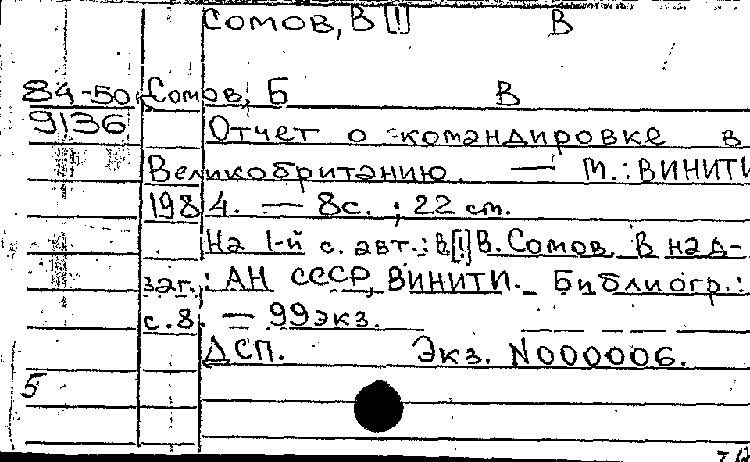 Сомов, В [!] В
84-50 Сомов, Б В
9136 Отчет о командировке в
Великобританию. — М.: ВИНИТИ
1984. — 8с. ; 22 см.
На 1-й с. авт.: В[!] В. Сомов. В над-
заг.: АН СССР, ВИНИТИ. Библиогр.:
с.8. — 99экз.
ДСП. Экз. N000006.
5